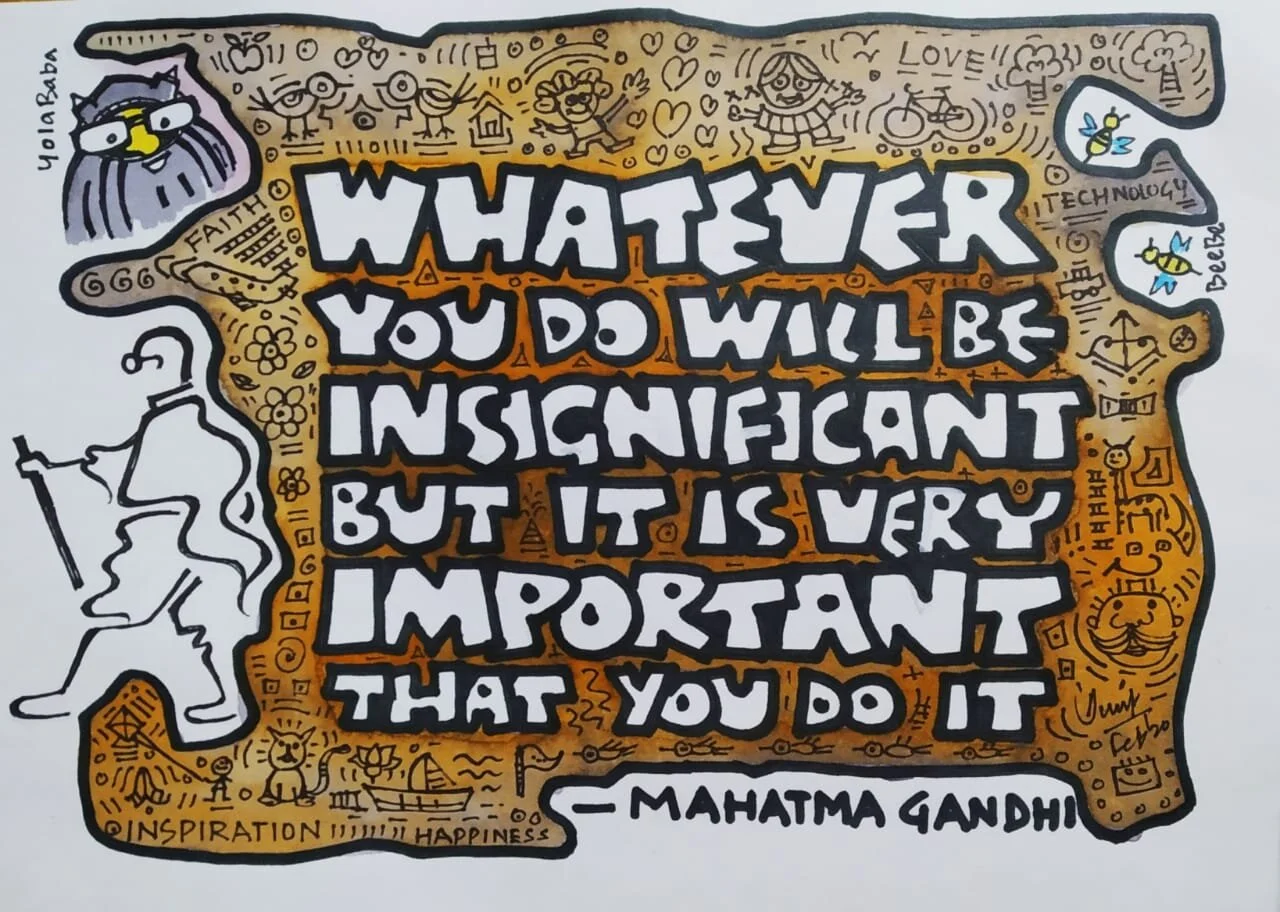 YolaBaba
LOVE
TECHNOLOGY
BeeBe
FAITH
WHATEVER
YOU DO WILL BE
INSIGNIFICANT
BUT IT IS VERY
IMPORTANT
THAT YOU DO IT
— MAHATMA GANDHI
INSPIRATION
HAPPINESS